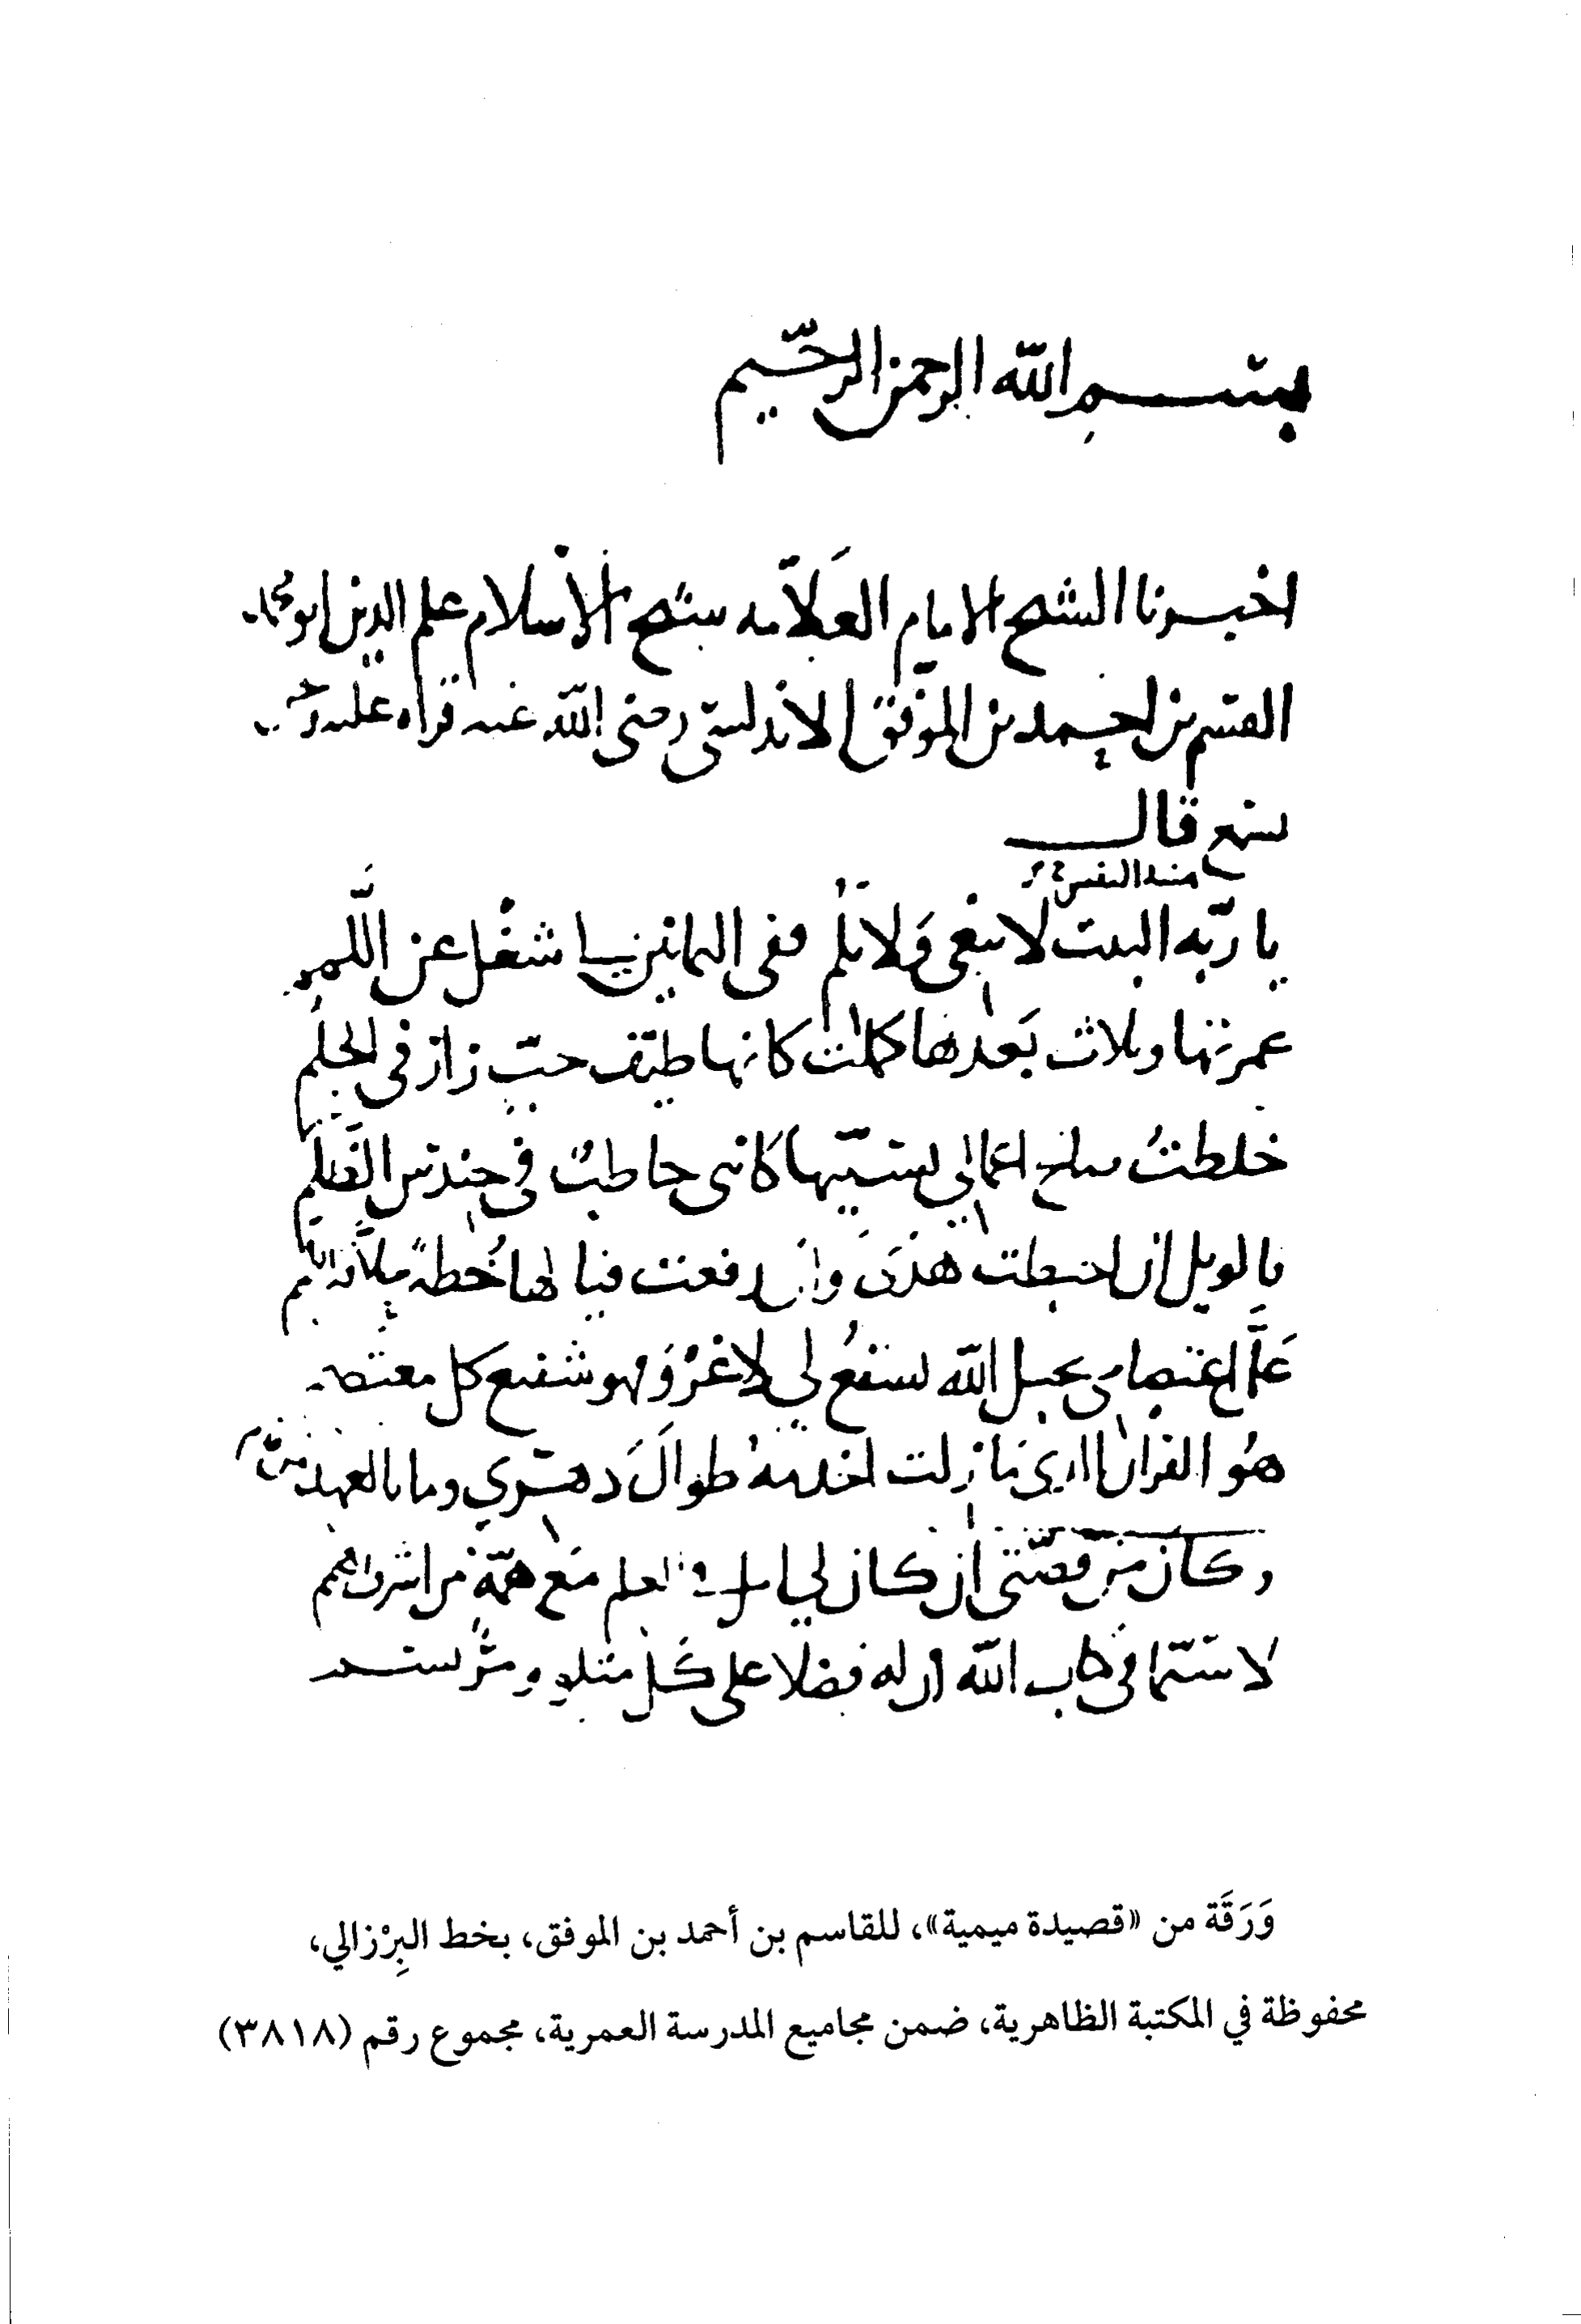 بسم الله الرحمن الرحيم
اخبرنا الشيخ الامام العلامه شيخ الاسلام علم الدين ابو محمد
القسم بن احمد بن الموفق الاندلسي رضي الله عنه قراه عليه
نسمع قال
يا ربّه البيت لا تبغي وَلا تلُم ففي الثمانين لي شغْل عن اللَّمم
عمرتها وثلاث بَعدها كملت كانها طيف حبٍّ زار في الحلُم
خلطتُ صالح اعمالي بسيّيها كانني حاطبٌ في حِندس الظُّلَم
يا لويل ان احبطت هذي وان رفعت فيا لها خُطةً
عَلَّ اعتصامي بحبل الله يشفعُ لي لا غرْوَ فهو شفيع كل معتصم
هُو القران الذي مَا زلت اخدمهُ طوالَ دهري وما بالعهد من
وكان من قصّتي ان كان لي العلم مَع همّةٍ من اشرف الهمم
لا سيّما في كتاب الله ان له فضلا على كُلِّ متلوٍ
وَرَقَة من «قصيدة ميمية»، للقاسم بن أحمد بن الموفق، بخط البِرْزالي،
محفوظة في المكتبة الظاهرية، ضمن مجاميع المدرسة العمرية، مجموع رقم (٣٨١٨)